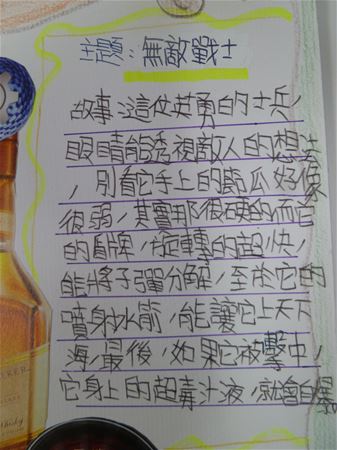 主題：無敵戰士
故事：這位英勇的士兵，
眼睛能透視敵人的想法
，別看它手上的節瓜好像
很弱，其實那很硬的而它
的盾牌，旋轉的超快，
能將子彈分解，至於它的
噴射水箭，能讓它上天下
海，最後，如果它被擊中，
它身上的超毒汁液，就會自爆
Whisky